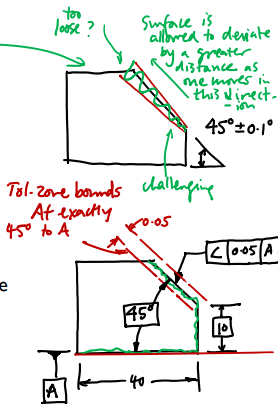 too
loose?
Surface is
allowed to deviate
by a greater
distance as
one moves in
this direct-
ion
45°±0.1°
challenging
Tol-zone bounds
At exactly
45° to A
0.05
∠ 0.05 A
45°
10
e
A
40